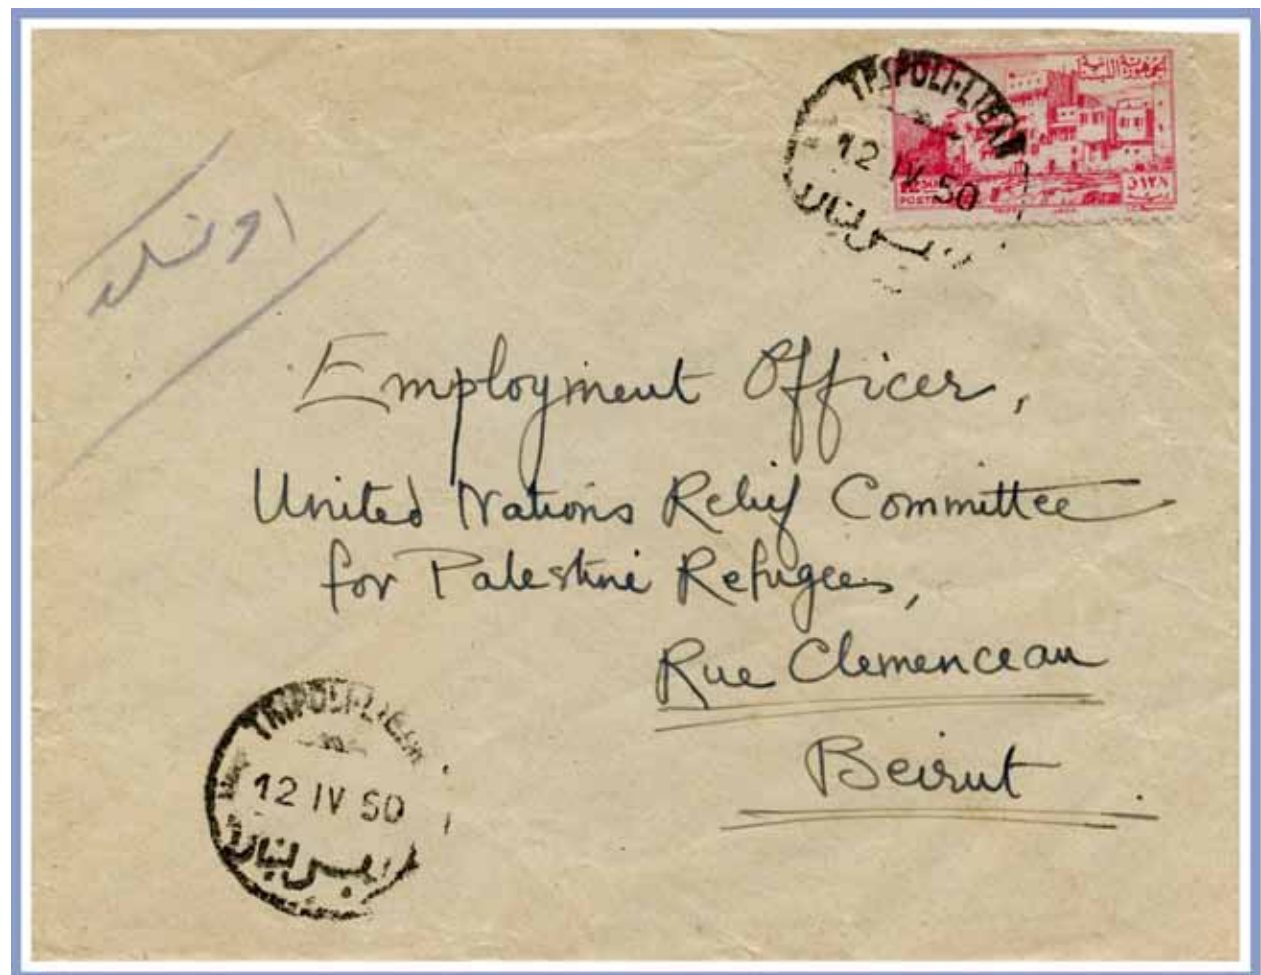 TRIPOLI-LIBAN
12 IV 50
الجمهورية اللبنانية
POSTE
Employment Officer,
United Nations Relief Committee
for Palestine Refugees,
Rue Clemenceau
Beirut
TRIPOLI-LIBAN
12 IV 50
طرابلس لبنان